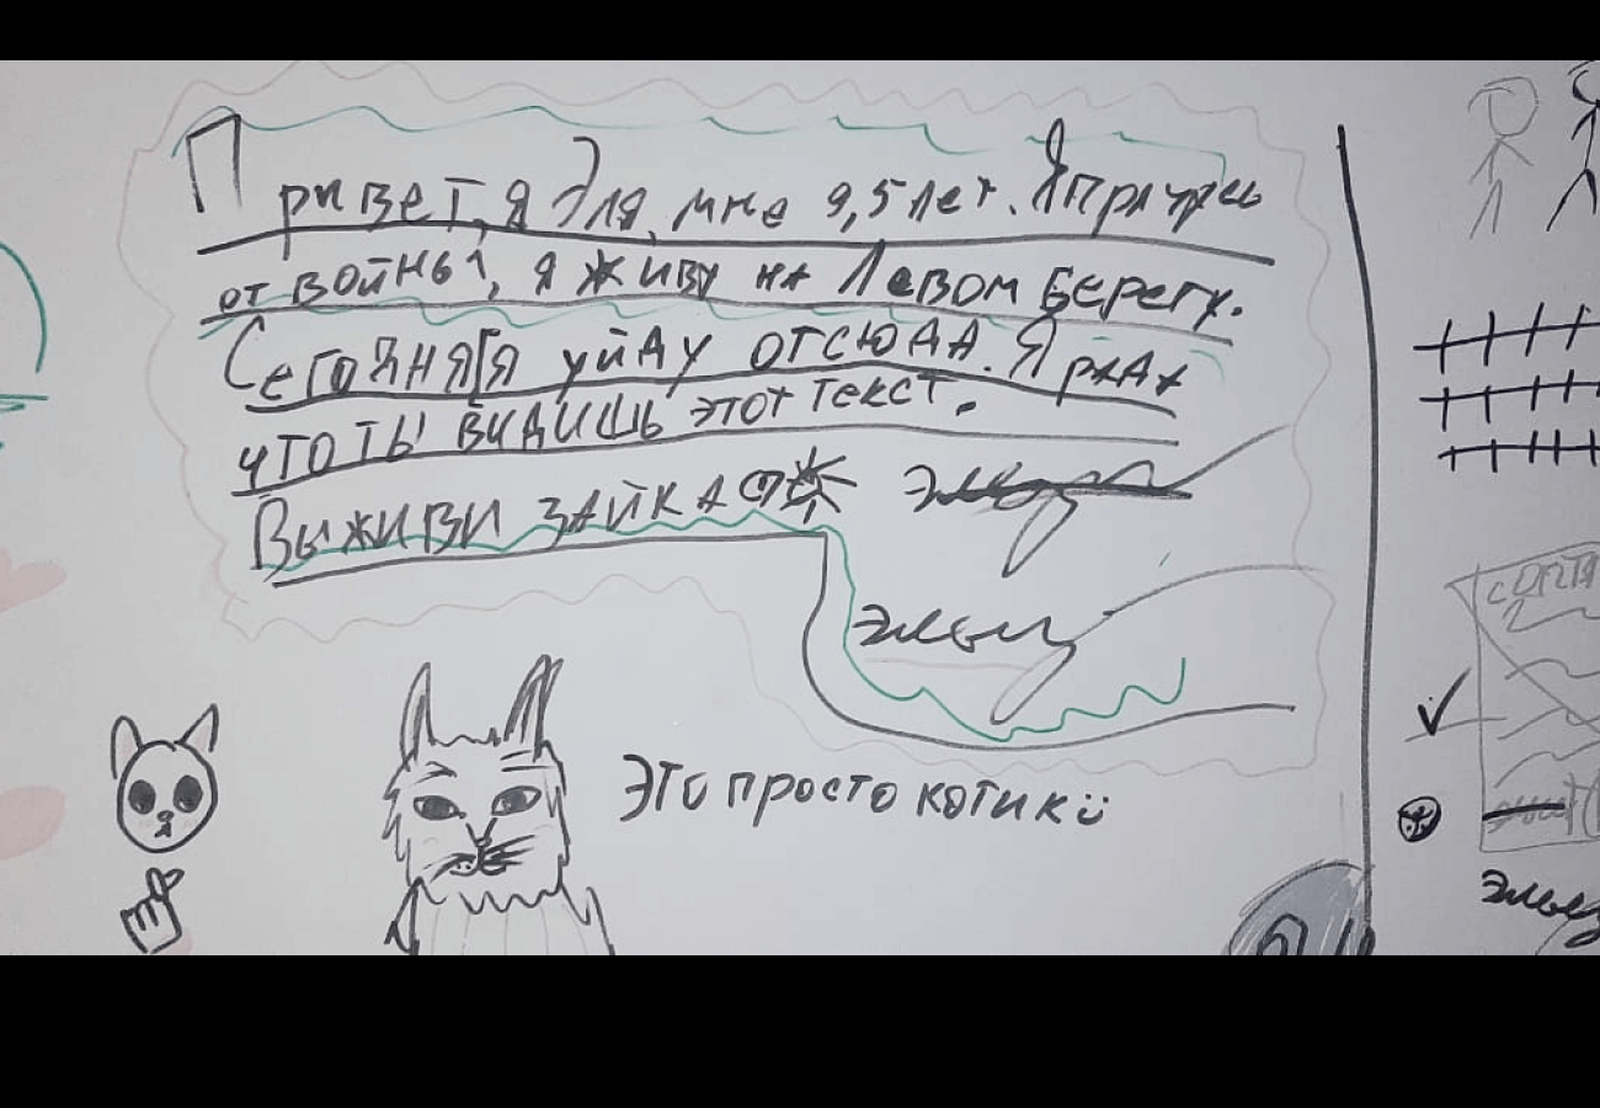 Привет, я Эля, мне 9,5 лет. Я прячусь
от войны, я живу на Левом Берегу.
Сегодня я уйду отсюда. Я рада
что ты видишь этот текст.
Выживи зайка
Это просто котик